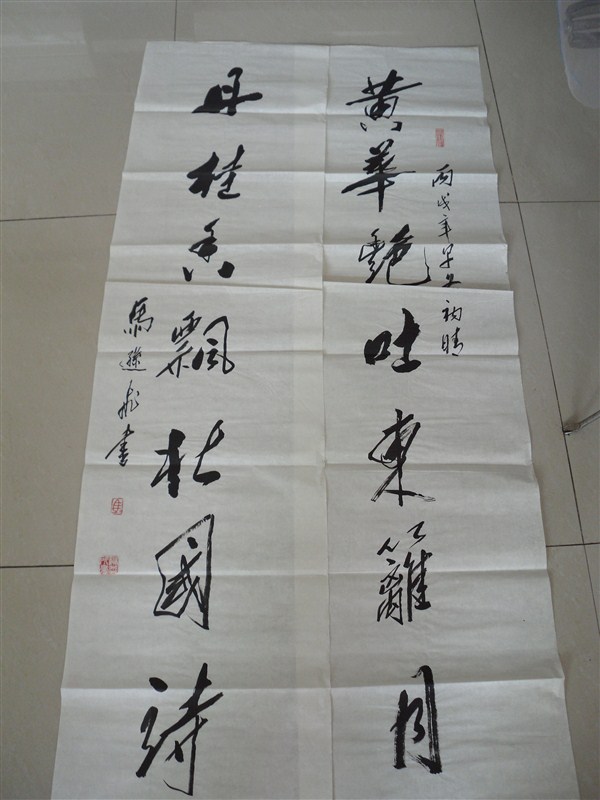 黄華艷吐東籬月
丙戌年早初晴
丹桂香飄國詩
馬飛書